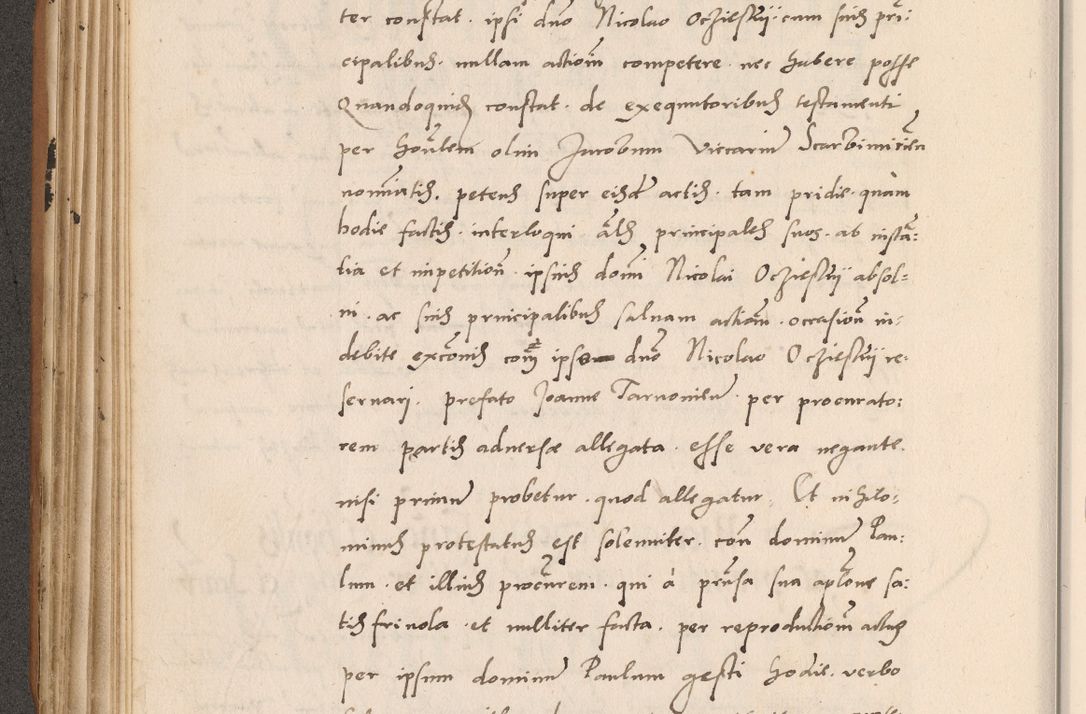 ter constat. ipsi dno Nicolao Oczieskij cum suis pri:
cipalibus. nullam actionem competere. nec habere posse
Quandoquidem constat. de exequutoribus testamenti
per honlem olim Jacobum Viccarium Scarbimirien
nominatis. petens super eisdem actis. tam pridie. quam
hodie factis. interloqui ales principales suos. ab instan:
tia et impetition. ipsius domi Nicolai Oczieskij absol=
ui. ac suis principalibus saluam actionem. occasion in:
debite exconis con ipso dno Nicolao Oczieskij re:
seruari. prefato Joanne Tarnouien. per procurato:
rem partis aduersæ allegata. esse vera negante.
nisi primum probetur. quod allegatur. Et nihilo:
minus protestatus est solemniter. con dominum Pau:
lum. et illius procurem. qui à prnsa sua aplone sa:
tis friuola. et nulliter facta. per reproductionem actus
per ipsum dominum Paulum gesti hodie. verbo